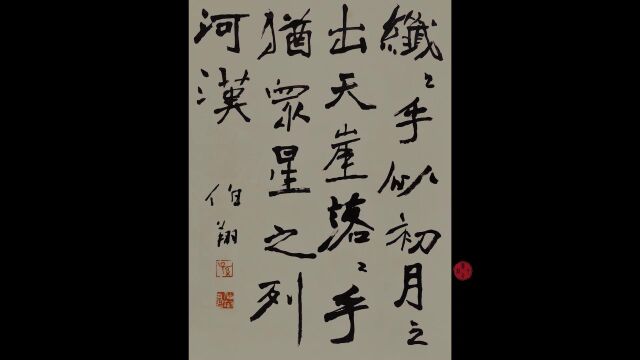 纖〻乎似初月之
出天崖落〻乎
猶眾星之列
河漢
伯翔